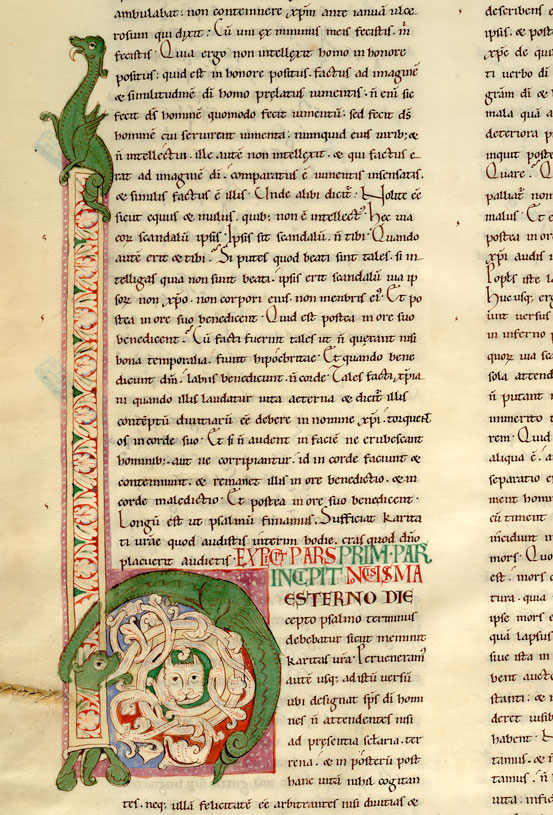 ambulabat. non contemnere xp̄m ante ianuā ulce
rosum qui dixit: Cū uni ex minimis meis fecistis. m̄
fecistis. Quia ergo non intellexit homo in honore
positus: quid est in honore positus. factus ad imaginē
& similitudinē dī homo prelatus iumentis. ñ enī sic
fecit d̄s hominē quomodo fecit iumentū: sed fecit d̄s
hominē cui seruirent iumenta. numquid eius uirib; &
ñ intellectui. ille autē non intellexit. & qui factus e
rat ad imaginē dī. comparatus ē iumentis insensatis.
& similis factus ē illis. Unde alibi dicit̄. Nolite eē
sicut equus & mulus. quib; non ē intellectꝰ. Hec uia
eoꝝ scandalū ipsis. Ipsis sit scandalū. ñ tibi. Quando
autē erit & tibi. Si putes quod beati sunt tales. si in
telligas quia non sunt beati. ipsis erit scandalū uia ip
soꝝ non xp̄o. non corpori eius. non membris eiꝰ. Et po
stea in ore suo benedicent. Quid est postea in ore suo
benedicent. Cū facti fuerint tales ut ñ querant nisi
bona temporalia. fiunt hipocritae. Et quando bene
dicunt dm̄. labiis benedicunt. ñ corde. Tales facti xp̄ia
ni quando illis laudatur uita aeterna & dicit̄ illis
contēptū diuitiarū eē debere in nomine xp̄i. torquent
os in corde suo. Et si ñ audent in faciē ne erubescant
hominib;. aut ne corripiantur. id in corde faciunt &
contemnunt. & remanet illis in ore benedictio. & in
corde maledictio. Et postea in ore suo benedicent.
Longū est ut psalmū finiamus. Sufficiat karita
ti urae quod audistis interim hodie. cras quod dn̄o
placuerit audietis. EXPLICIT PARS PRIMA. PAR
INCIPIT
ESTERNO DIE
cepto psalmo terminus
debebatur sicut meminit
karitas ur̄a. Perueneramꝰ
autē usq; ad istū uersū
ubi designat sp̄s dī homi
nes ñ attendentes nisi
ad presentia secularia. ter
rena. & in posterū post
hanc uitā nihil cogitan
tes. neq; ullā felicitatē eē arbitrantes nisi diuitias &
describens
ipsis. & post
xp̄e de qu
ti uerbo dī
grām dī &
mala quā a
deteriora p
inquit poste
Quare.
palliat̄ non
malus. Et
postea in or
xp̄i audis
Poples iste
Huc usq; erg
unt uersus
in inferno p
quoꝝ uia sca
sola attend
ñ putant
inmerito
rem. Quid
aliqua ē. a
separatio e
ment homin
cū timent
incidunt in
mors. Quo
est. mors
tura. quia
ipse mors e
quā lapsus
siue ista in
bent aucto
stanti. &
deret uisib
habent.
tamus. &
tamus. ñ
uita. infic